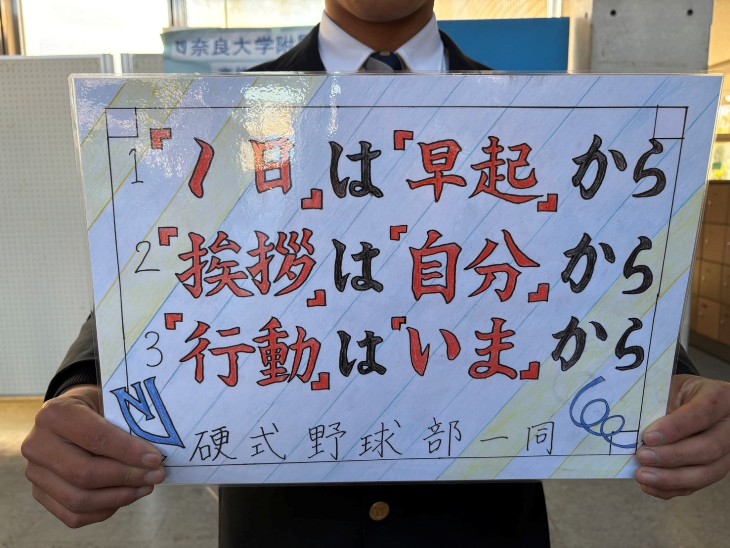 奈良大学附
1 『1日』は『早起』から
2 『挨拶』は『自分』から
3 『行動』は『いま』から
硬式野球部一同